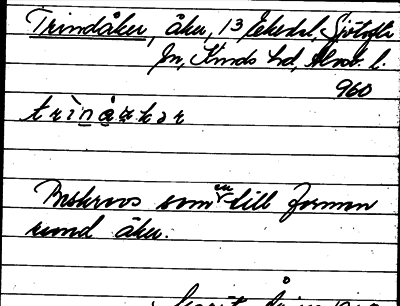 Trindåker, åker, 13, Ekedal, Sjötofta
sn, Kinds hd, Älvsb. l.
960
trìnåkər
Beskrevs som en till formen
rund åker.